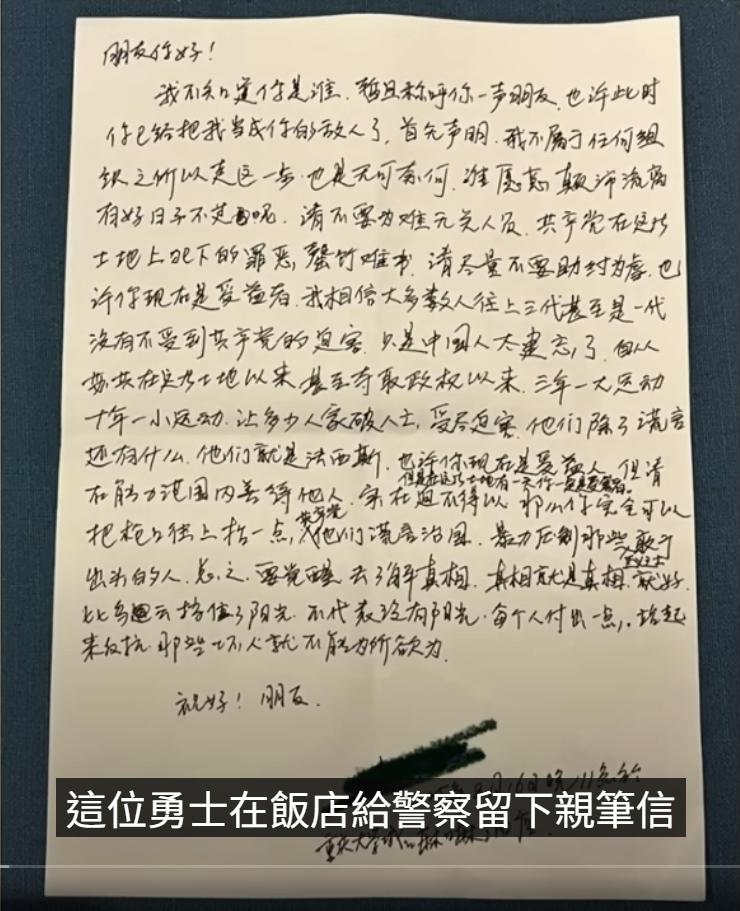 朋友你好！
我不知道你是谁，暂且称呼你一声朋友，也许此时
你已经把我当成你的敌人了，首先声明，我不属于任何组
织之所以走这一步也是无可奈何，谁愿意颠沛流离
有好日子不过呢，请不要为难无关人员，共产党在这片
土地上犯下的罪恶，罄竹难书，请尽量不要助纣为虐，也
许你现在是受益者，我相信大多数人往上三代甚至是一代
没有不受到共产党的迫害，只是中国人太健忘了，自从
共在这片土地以来甚至夺取政权以来，三年一大运动
十年一小运动，让多少人家破人亡，受尽迫害，他们除了谎言
还有什么，他们就是法西斯，也许你现在是受益人，但请
但是在这片土地有一天你一定是受害者。
在能力范围内善待他人，实在迫不得以，那么你完全可以
把枪口往上抬一点，共产党他们谎言治国，暴力压制那些敢于
出头的人，总之，要觉醒去了解真相，真相就是真相，就好
比乌云挡住了阳光，不代表没有阳光，每个人付出一点，站起
来反抗，那些坏人就不能为所欲为。
祝好！朋友。
這位勇士在飯店給警察留下親筆信
重庆大学城